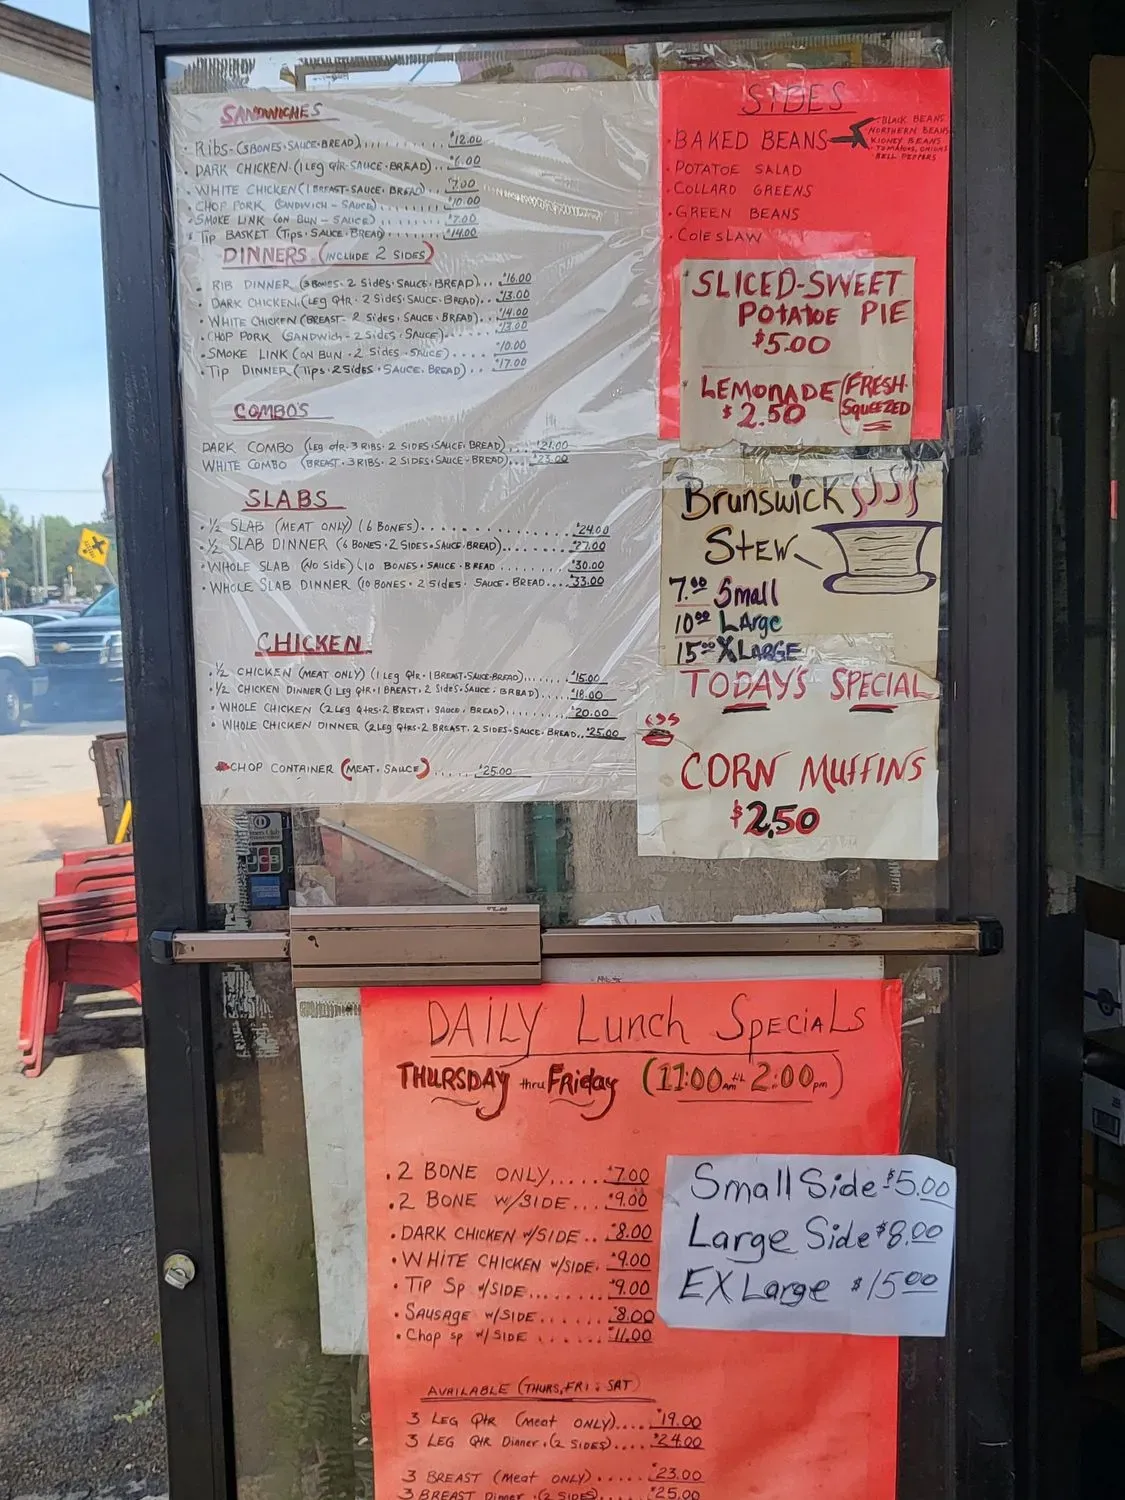 SANDWICHES
• Ribs-(3 BONES・SAUCE・BREAD)........ $12.00
• DARK CHICKEN・(1 LEG QtR-SAUCE・BREAD)... $6.00
• WHITE CHICKEN (1 BREAST-SAUCE・BREAD)... $7.00
• CHOP PORK (SANDWICH - SAUCE)....... $10.00
• SMOKE LINK (ON BUN - SAUCE)....... $7.00
• Tip BASKET (Tips・SAUCE・BREAD)...... $14.00
DINNERS (INCLUDE 2 SIDES)
• RIB DINNER (3 BONES・2 Sides・SAUCE・BREAD)... $16.00
• DARK CHICKEN (Leg Qtr・2 Sides・SAUCE・BREAD)... $13.00
• WHITE CHICKEN (BREAST- 2 Sides・SAUCE・BREAD)... $14.00
• CHOP PORK (SANDWICH - 2 Sides・SAUCE)...... $13.00
• SMOKE LINK (ON BUN・2 Sides・SAUCE)..... $10.00
• Tip DINNER (Tips・2 Sides・SAUCE・BREAD)... $17.00
COMBO'S
DARK COMBO (Leg Qtr・3 RIBS・2 SIDES・SAUCE・BREAD)... $21.00
WHITE COMBO (BREAST・3 RIBS・2 SIDES・SAUCE・BREAD)... $23.00
SLABS
• ½ SLAB (MEAT ONLY) (6 BONES)............ $24.00
• ½ SLAB DINNER (6 BONES・2 Sides・SAUCE・BREAD)...... $27.00
• WHOLE SLAB (NO SIDE) (10 BONES・SAUCE・BREAD)...... $30.00
• WHOLE SLAB DINNER (10 BONES・2 Sides・SAUCE・BREAD.... $33.00
CHICKEN
• ½ CHICKEN (MEAT ONLY) (1 Leg Qtr・1 BREAST・SAUCE・BREAD)...... $15.00
• ½ CHICKEN DINNER (1 LEG QtR・1 BREAST・2 Sides・SAUCE・BREAD).... $18.00
• WHOLE CHICKEN (2 Leg Qtrs・2 BREAST, SAUCE・BREAD)....... $20.00
• WHOLE CHICKEN DINNER (2 Leg Qtrs・2 BREAST, 2 SIDES・SAUCE・BREAD.. $25.00
CHOP CONTAINER (MEAT, SAUCE)...... $25.00
SIDES
• BAKED BEANS
• BLACK BEANS
NORTHERN BEANS
KIDNEY BEANS
TOMATOES, ONIONS
BELL PEPPERS
• POTATOE SALAD
• COLLARD GREENS
• GREEN BEANS
• Cole SLAW
SLICED-SWEET
POTATOE PIE
$5.00
LEMONADE (FRESH-
SQUEEZED)
$2.50
Brunswick
Stew
7.00 Small
10.00 LArge
15.00 XLARGE
TODAY'S SPECIAL
CORN MUFFINS
$2.50
JCB
DAILY Lunch SpeciaLs
THURSDAY thru FRiday (11:00am til 2:00pm)
• 2 BONE ONLY..... $7.00
• 2 BONE w/SIDE.... $9.00
• DARK CHICKEN w/SIDE.. $8.00
• WHITE CHICKEN w/SIDE. $9.00
• Tip Sp w/SIDE....... $9.00
• Sausage w/SIDE...... $8.00
• Chop sp w/SIDE ...... $11.00
Small Side $5.00
Large Side $8.00
EX Large $15.00
AVAILABLE (THURS, FRI & SAT)
3 LEG Qtr (Meat ONLY).... $19.00
3 LEG QtR Dinner・(2 SIDES).... $24.00
3 BREAST (Meat ONLY)...... $23.00
3 BREAST Dinner・(2 SIDES).... $25.00